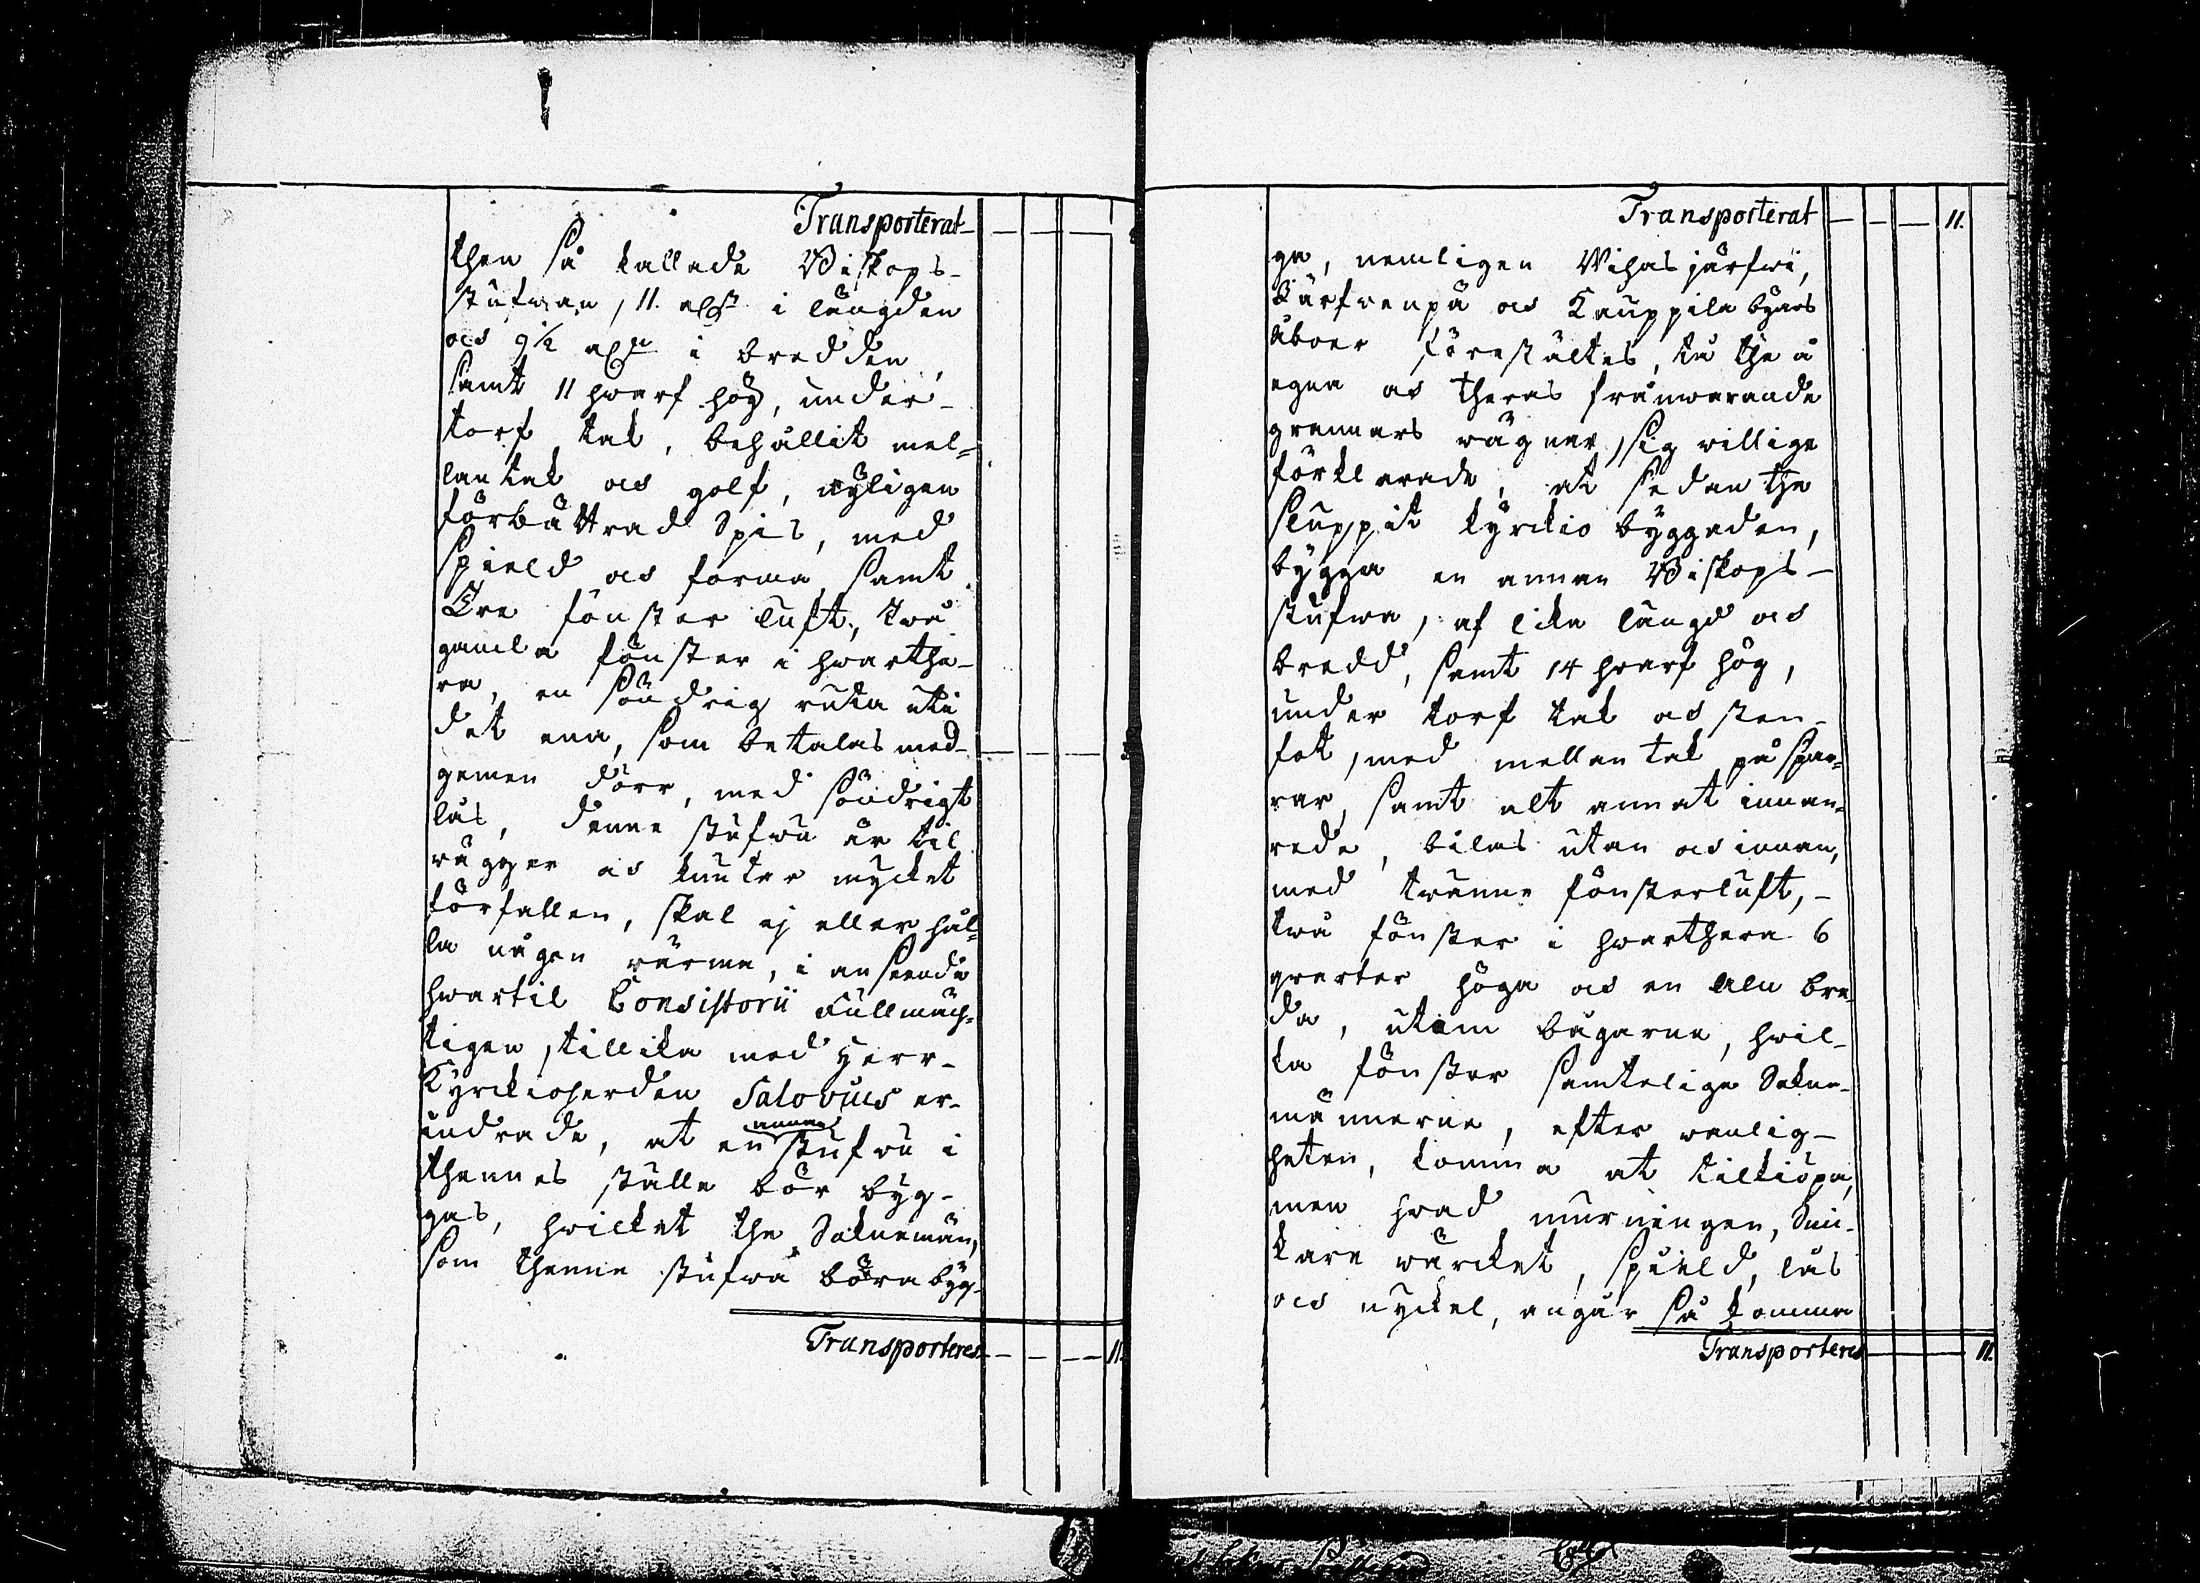 Transporterat
then så kallade Biskops-
stufwan, 11. aln:r i längden
och 9½ aln:r i bredden,
samt 11 hwarf hög, under
torf tak, behållit mel-
lantak och golf, nyligen
förbättrad Spis, med
spield och forma, samt
Tre fönster luft, twå
gamla fönster i hwarthe-
ra, en söndrig ruta uti
det ena, som betalas med
gemen dörr, med söndrigt
lås, denne stufwa är til
wäggar och knutar mycket
förfallen, skal ej eller hål-
la någon wärme, i anseende
hwartil Consistorii Fullmäch-
tigen, tillika med Herr
Kyrckioherden Salovius er-
indrade, at en annan stufwa i
thennes ställe bör byg-
gas, hwilket the Soknemän,
som thenne stufwa böra byg-
Transporteres 11.
Transporterat 11.
ga, nemligen Wihasjärfwi,
Järfwenpä och Kauppila byars
åboer förestältes, tå the å
egna och theras frånwarande
grannars wägnar, sig willige
förklarade, at sedan the
sluppit kyrckio byggaden,
bygga en annan Biskops-
stufwa, af lika längd och
bredd, samt 14 hwarf hög,
under torf tak och sten-
fot, med mellantak på spar-
rar, samt alt annat innan-
rede, bilas utan och innan,
med twänne fönsterluft,
twå fönster i hwarthera 6
qwarter höga och en aln bre-
da, utom bågarne, hwil-
ka fönster samtelige Sokne-
männerne, efter wanlig-
heten, komma at tilkiöpa,
men hwad murningen, Snic-
kare wärcket, spield, lås
och nyckel, angår så komma
Transporteres 11.